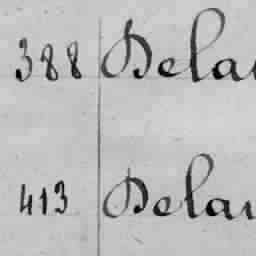 388 Dela
413 Dela